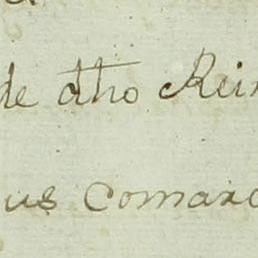 de dho Rein
us comarc